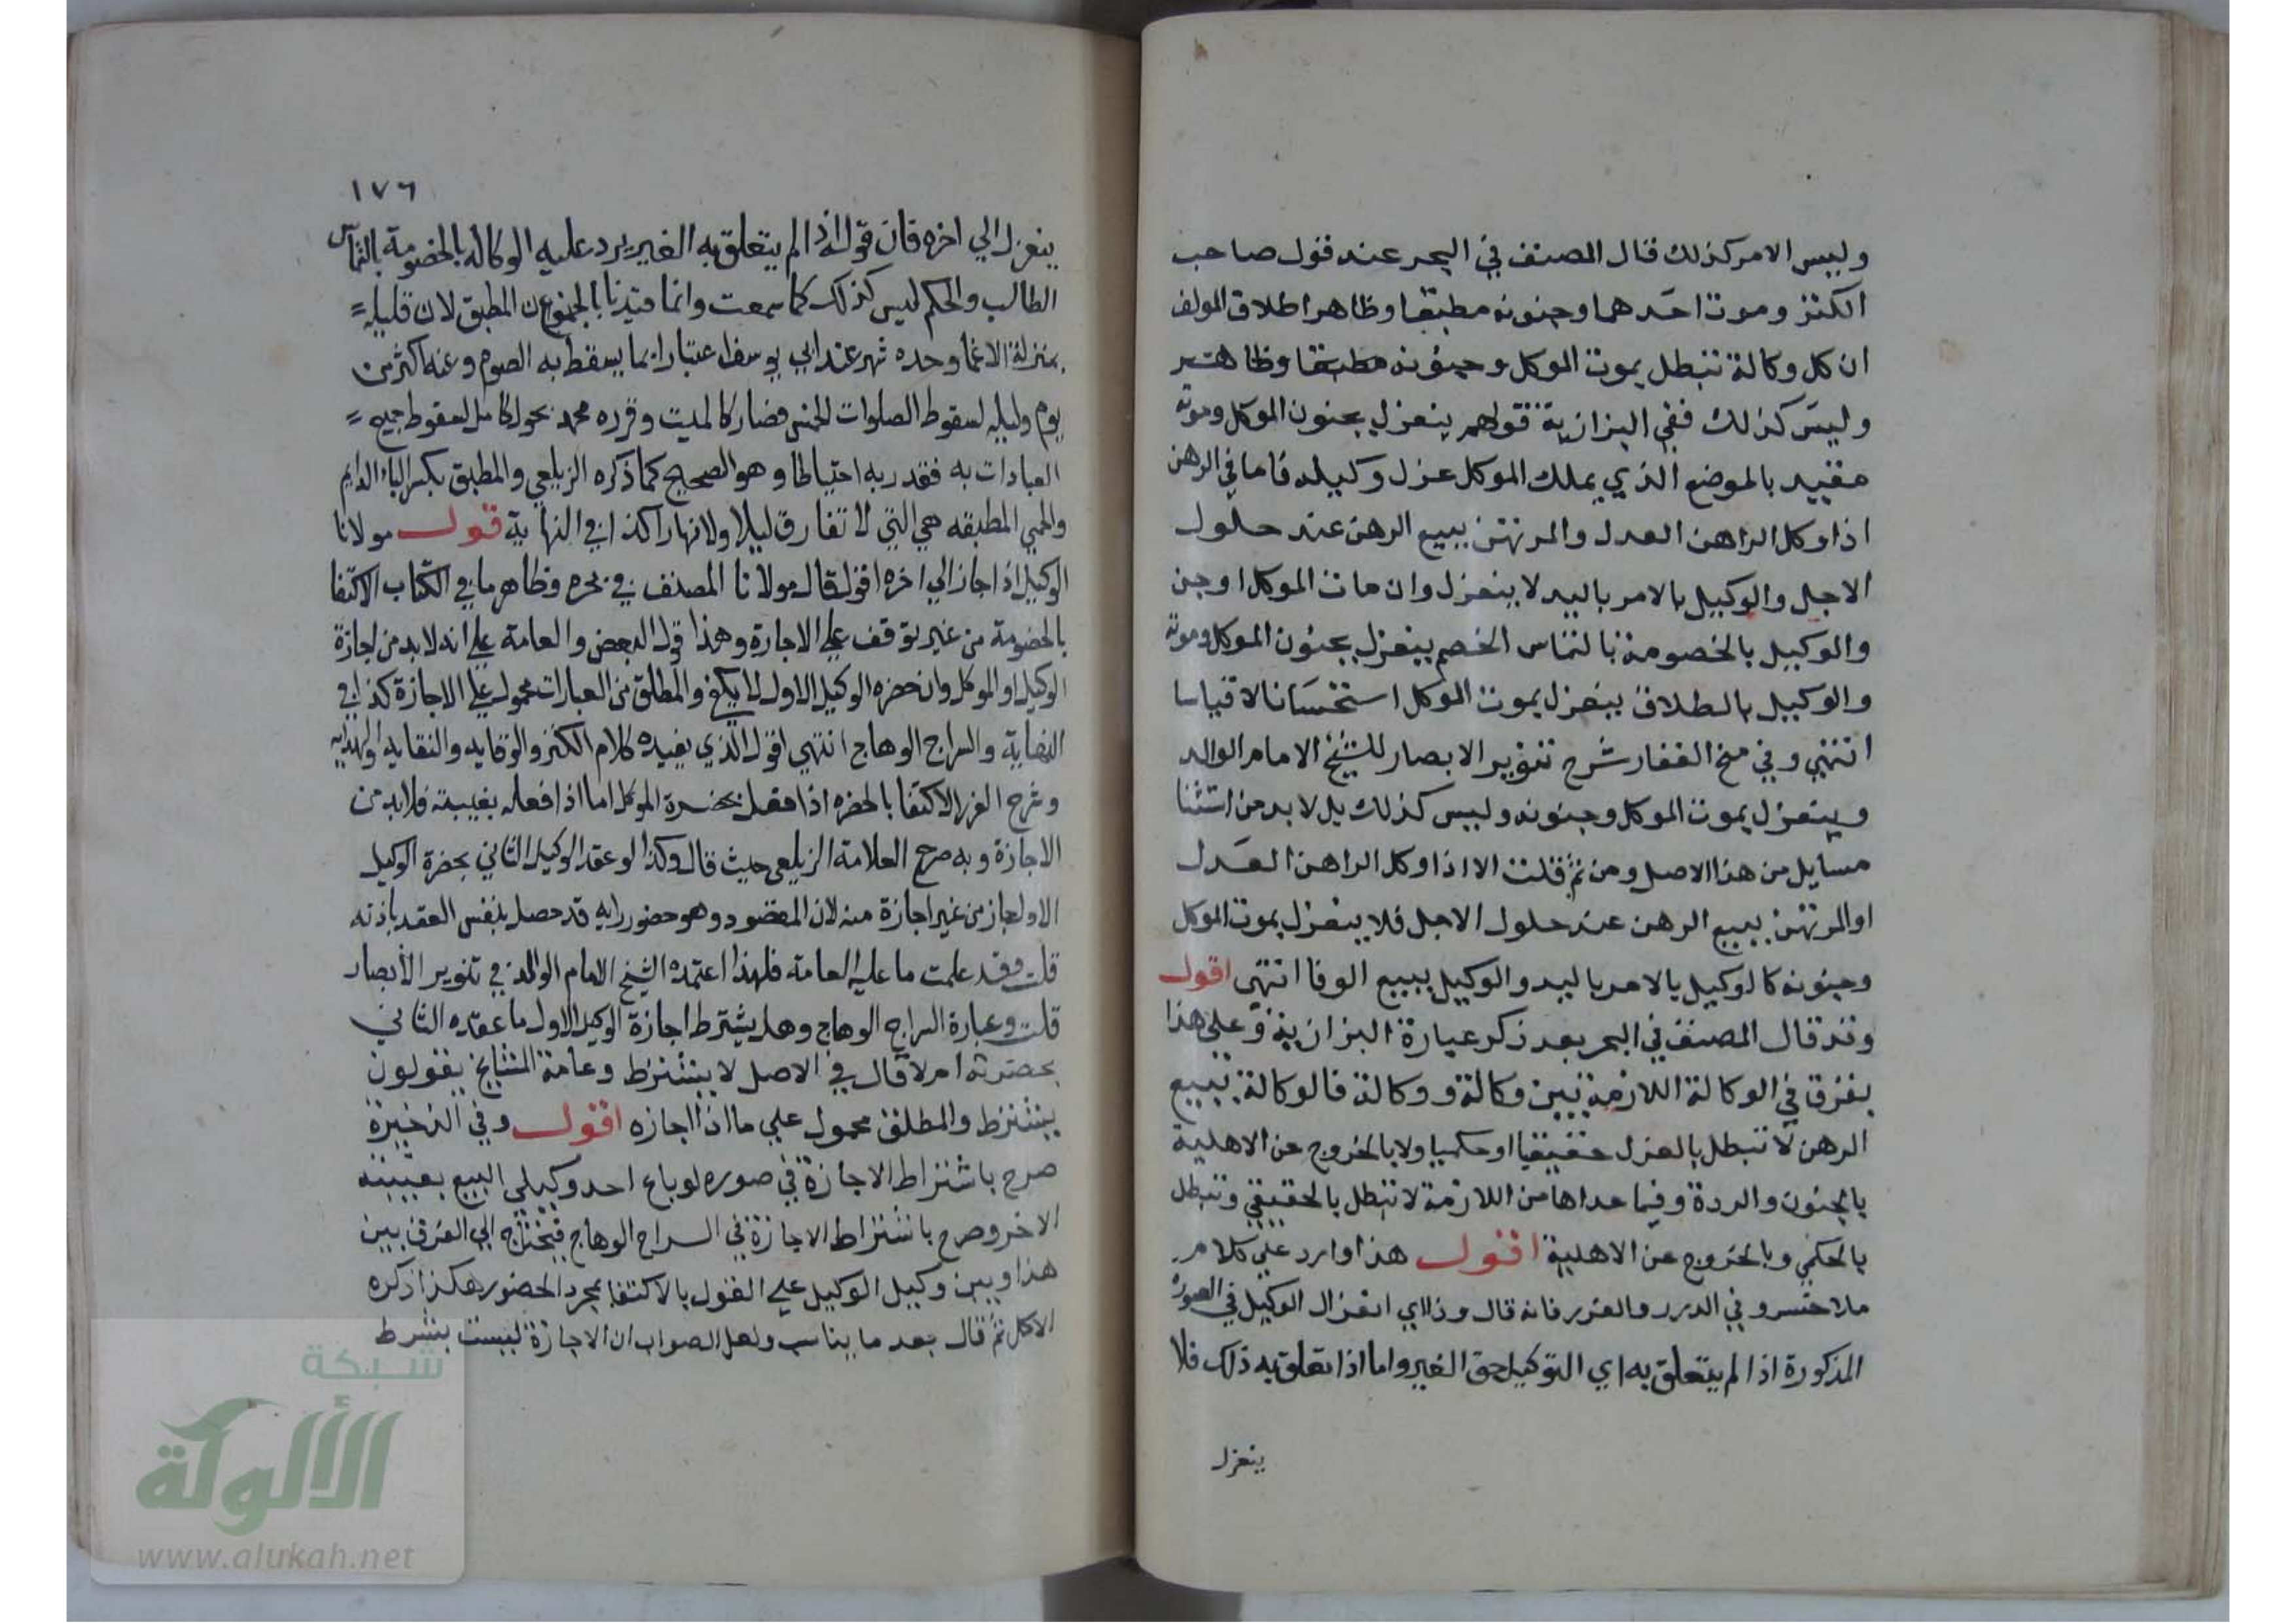 وليس الامر كذلك قال المصنف في البحر عند قول صاحب
الكنز وموت احدهما وجنونه مطبقا وظاهر اطلاق المولف
ان كل وكالة تبطل بموت الموكل وجنونه مطبقا وظاهر
وليس كذلك ففي البزازية قولهم ينعزل بجنون الموكل وموته
مقيد بالموضع الذي يملك الموكل عزل وكيله فاما في الرهن
اذا وكل الراهن العدل والمرتهن ببيع الرهن عند حلول
الاجل والوكيل بالامر باليد لا ينعزل وان مات الموكل او جن
والوكيل بالخصومة بالتماس الخصم ينعزل بجنون الموكل وموته
والوكيل بالطلاق ينعزل بموت الموكل استحسانا لا قياسا
انتهي وفي منح الغفار شرح تنوير الابصار للشيخ الامام الوالد
وينعزل بموت الموكل وجنونه وليس كذلك بل لا بد من استثنا
مسايل من هذا الاصل ومن ثم قلت الا اذا وكل الراهن العدل
او المرتهن ببيع الرهن عند حلول الاجل فلا ينعزل بموت الموكل
وجنونه كالوكيل بالامر باليد والوكيل ببيع الوفا انتهى اقول
وقد قال المصنف في البحر بعد ذكر عبارة البزازية وعلى هذا
يفرق في الوكالة اللازمة بين وكالة ووكالة فالوكالة ببيع
الرهن لا تبطل بالعزل حقيقيا او حكميا ولا بالخروج عن الاهلية
بالجنون والردة وفيما عداها من اللازمة لا تبطل بالحقيقي وتبطل
بالحكمي وبالخروج عن الاهلية اقول هذا وارد علي كلام
ملا خسرو في الدرر والغرر فانه قال وذا اي انعزال الوكيل في الصورة
المذكورة اذا لم يتعلق به اي التوكيل حق الغير واما اذا تعلق به ذلك فلا
ينعزل
١٧٦
ينعزل الي اخره فان قوله اذا لم يتعلق به الغير يرد عليه الوكالة بالخصومة بالتماس
الطالب والحكم ليس كذلك كما سمعت وانما قيدنا بالجنون المطبق لان قليله =
بمنزلة الاغما وحده شهر عند ابي يوسف اعتبارا بما يسقط به الصوم وعنه اكثر من
يوم وليله لسقوط الصلوات الخمس فصار كالميت وقدره محمد بحول كامل لسقوط جميع =
العبادات به فقدر به احتياطا وهو الصحيح كما ذكره الزيلعي والمطبق بكسر الباء الدايم
والحمي المطبقه هي التي لا تفارق ليلا ولا نهارا كذا في النهاية قوله مولانا
الوكيل اذا جاز الي اخره اقول قال مولانا المصنف في بحره وظاهر ما في الكتاب الاكتفا
بالخصومة من غير توقف علي الاجازة وهذا قول البعض والعامة علي انه لا بد من اجازة
الوكيل او الموكل وان حضره الوكيل الاول لا يكفي والمطلق من العبارات محمول علي الاجازة كذا في
النهاية والسراج الوهاج انتهي اقول الذي يفيده كلام الكنز والوقايه والنقايه والهدايه
وشرح الغرر الاكتفا بالحضره اذا فعل بحضرة الموكل اما اذا فعله بغيبته فلا بد من
الاجازة وبه صرح العلامة الزيلعي حيث قال وكذا لو عقد الوكيل الثاني بحضرة الوكيل
الاول جاز من غير اجازة منه لان المقصود وهو حضور رايه قد حصل بنفس العقد باذنه
قلت وقد علمت ما عليه العامة فلهذا اعتمده الشيخ الامام الوالد في تنوير الأبصار
قلت وعبارة السراج الوهاج وهل يشترط اجازة الوكيل الاول ما عقده الثاني
بحضرته ام لا قال في الاصل لا يشترط وعامة المشايخ يقولون
يشترط والمطلق محمول علي ما اذا اجازه اقول وفي الذخيرة
صرح باشتراط الاجازة في صوره لو باع احد وكيلي البيع بغيبة
الاخر وصرح باشتراط الاجازة في السراج الوهاج فيحتاج الي الفرق بين
هذا وبين وكيل الوكيل علي القول بالاكتفا بمجرد الحضور هكذا ذكره
الاكمل ثم قال بعد ما يناسب ولعل الصواب ان الاجازة ليست بشرط
شبكة
الألوكة
www.alukah.net